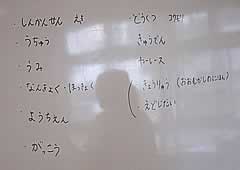 ・しんかんせん えき
・うちゅう
・うみ
・なんきょく・ほっきょく
・ようちえん
・がっこう
・どうくつ コウモリ
きゅうでん
カーレース
・きょうりゅう (おおむかしのにほん)
・えどじだい